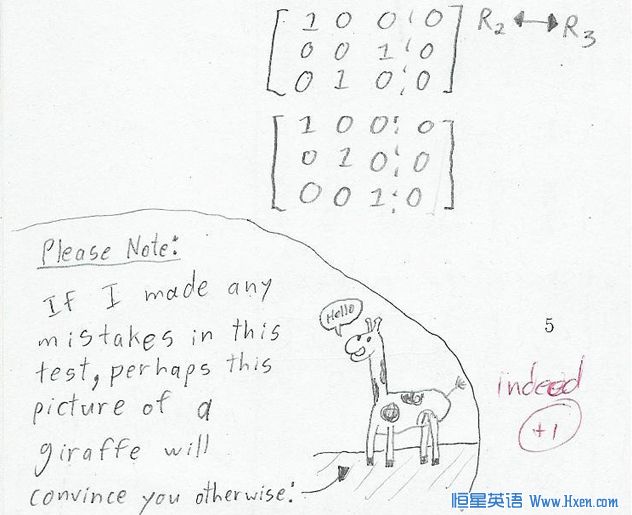 1 0 0 0 R2 ↔ R3
0 0 1 0
0 1 0 0
1 0 0 0
0 1 0 0
0 0 1 0
Please Note:
If I made any
mistakes in this
test, perhaps this
picture of a
giraffe will
convince you otherwise:
Hello
5
indeed
+1
恒星英语 Www.Hxen.com